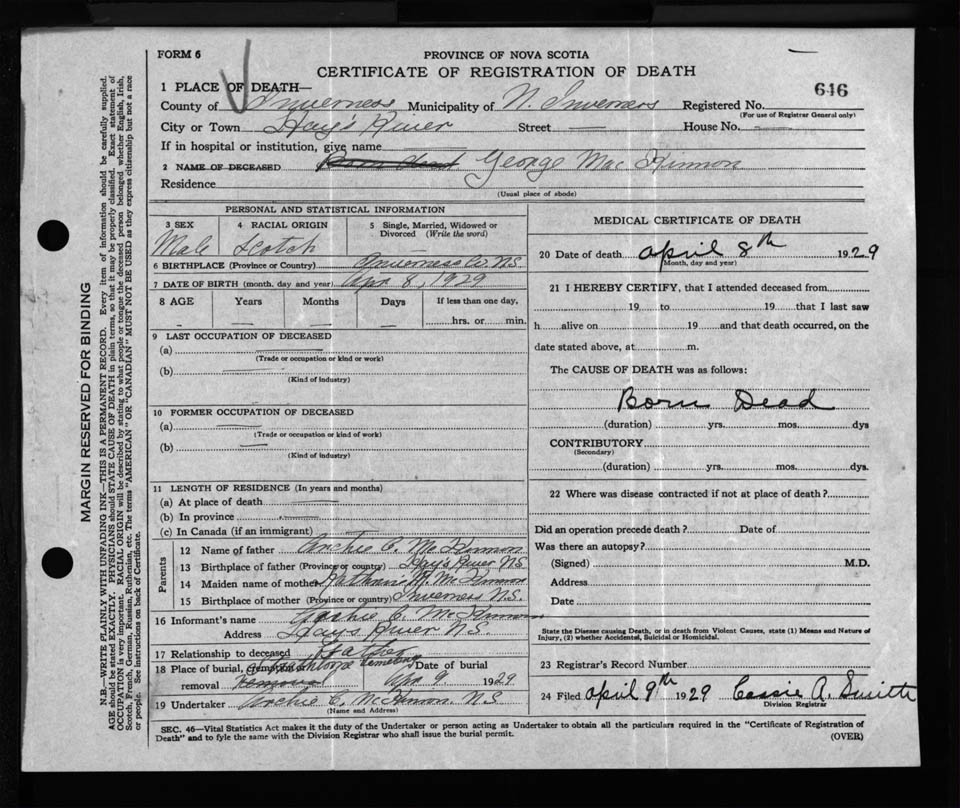 FORM 6
PROVINCE OF NOVA SCOTIA
CERTIFICATE OF REGISTRATION OF DEATH
646
1 PLACE OF DEATH—
County of Inverness Municipality of N. Inverness Registered No.
(For use of Registrar General only)
City or Town Hay's River Street — House No. —
If in hospital or institution, give name
2 NAME OF DECEASED Born dead George Mac Kinnon
Residence
(Usual place of abode)
PERSONAL AND STATISTICAL INFORMATION
3 SEX 4 RACIAL ORIGIN 5 Single, Married, Widowed or
Divorced (Write the word)
Male Scotch
6 BIRTHPLACE (Province or Country) Inverness Co. N.S.
7 DATE OF BIRTH (month, day and year) Apr 8, 1929
8 AGE Years Months Days If less than one day,
hrs. or min.
9 LAST OCCUPATION OF DECEASED
(a)
(Trade or occupation or kind or work)
(b)
(Kind of industry)
10 FORMER OCCUPATION OF DECEASED
(a)
(Trade or occupation or kind of work)
(b)
(Kind of industry)
11 LENGTH OF RESIDENCE (In years and months)
(a) At place of death
(b) In province
(c) In Canada (if an immigrant)
Parents
12 Name of father Archie C. McKinnon
13 Birthplace of father (Province or country) Hay's River N.S.
14 Maiden name of mother M. McKinnon
15 Birthplace of mother (Province or country) Inverness N.S.
16 Informant's name Archie C. McKinnon
Address Hay's River N.S.
17 Relationship to deceased Father
18 Place of burial, cremation or Cemetery Date of burial
removal Apr. 9 1929
19 Undertaker Archie C. McKinnon N.S.
(Name and Address)
MEDICAL CERTIFICATE OF DEATH
20 Date of death April 8th 1929
(Month, day and year)
21 I HEREBY CERTIFY, that I attended deceased from
19 to 19 that I last saw
h alive on 19 and that death occurred, on the
date stated above, at m.
The CAUSE OF DEATH was as follows:
Born Dead
(duration) yrs. mos. dys
CONTRIBUTORY
(Secondary)
(duration) yrs. mos. dys.
22 Where was disease contracted if not at place of death?
Did an operation precede death? Date of
Was there an autopsy?
(Signed) M.D.
Address
Date
State the Disease causing Death, or in death from Violent Causes, state (1) Means and Nature of
Injury, (2) whether Accidental, Suicidal or Homicidal.
23 Registrar's Record Number
24 Filed April 9th 1929 Cassie A. Smith
Division Registrar
SEC. 46—Vital Statistics Act makes it the duty of the Undertaker or person acting as Undertaker to obtain all the particulars required in the "Certificate of Registration of
Death" and to fyle the same with the Division Registrar who shall issue the burial permit.
(OVER)
MARGIN RESERVED FOR BINDING
N.B.—WRITE PLAINLY, WITH UNFADING INK—THIS IS A PERMANENT RECORD. Every item of information should be carefully supplied.
AGE should be stated EXACTLY. PHYSICIANS should STATE CAUSE OF DEATH in plain terms, so that it may be properly classified. Exact statement of
OCCUPATION is very important. RACIAL ORIGIN will be described by stating to what people or tongue the deceased person belonged whether English, Irish,
Scotch, French, German, Russian, Ruthenian, etc. The terms "AMERICAN" OR "CANADIAN" MUST NOT BE USED as they express citizenship but not a race
or people. See instructions on back of Certificate.